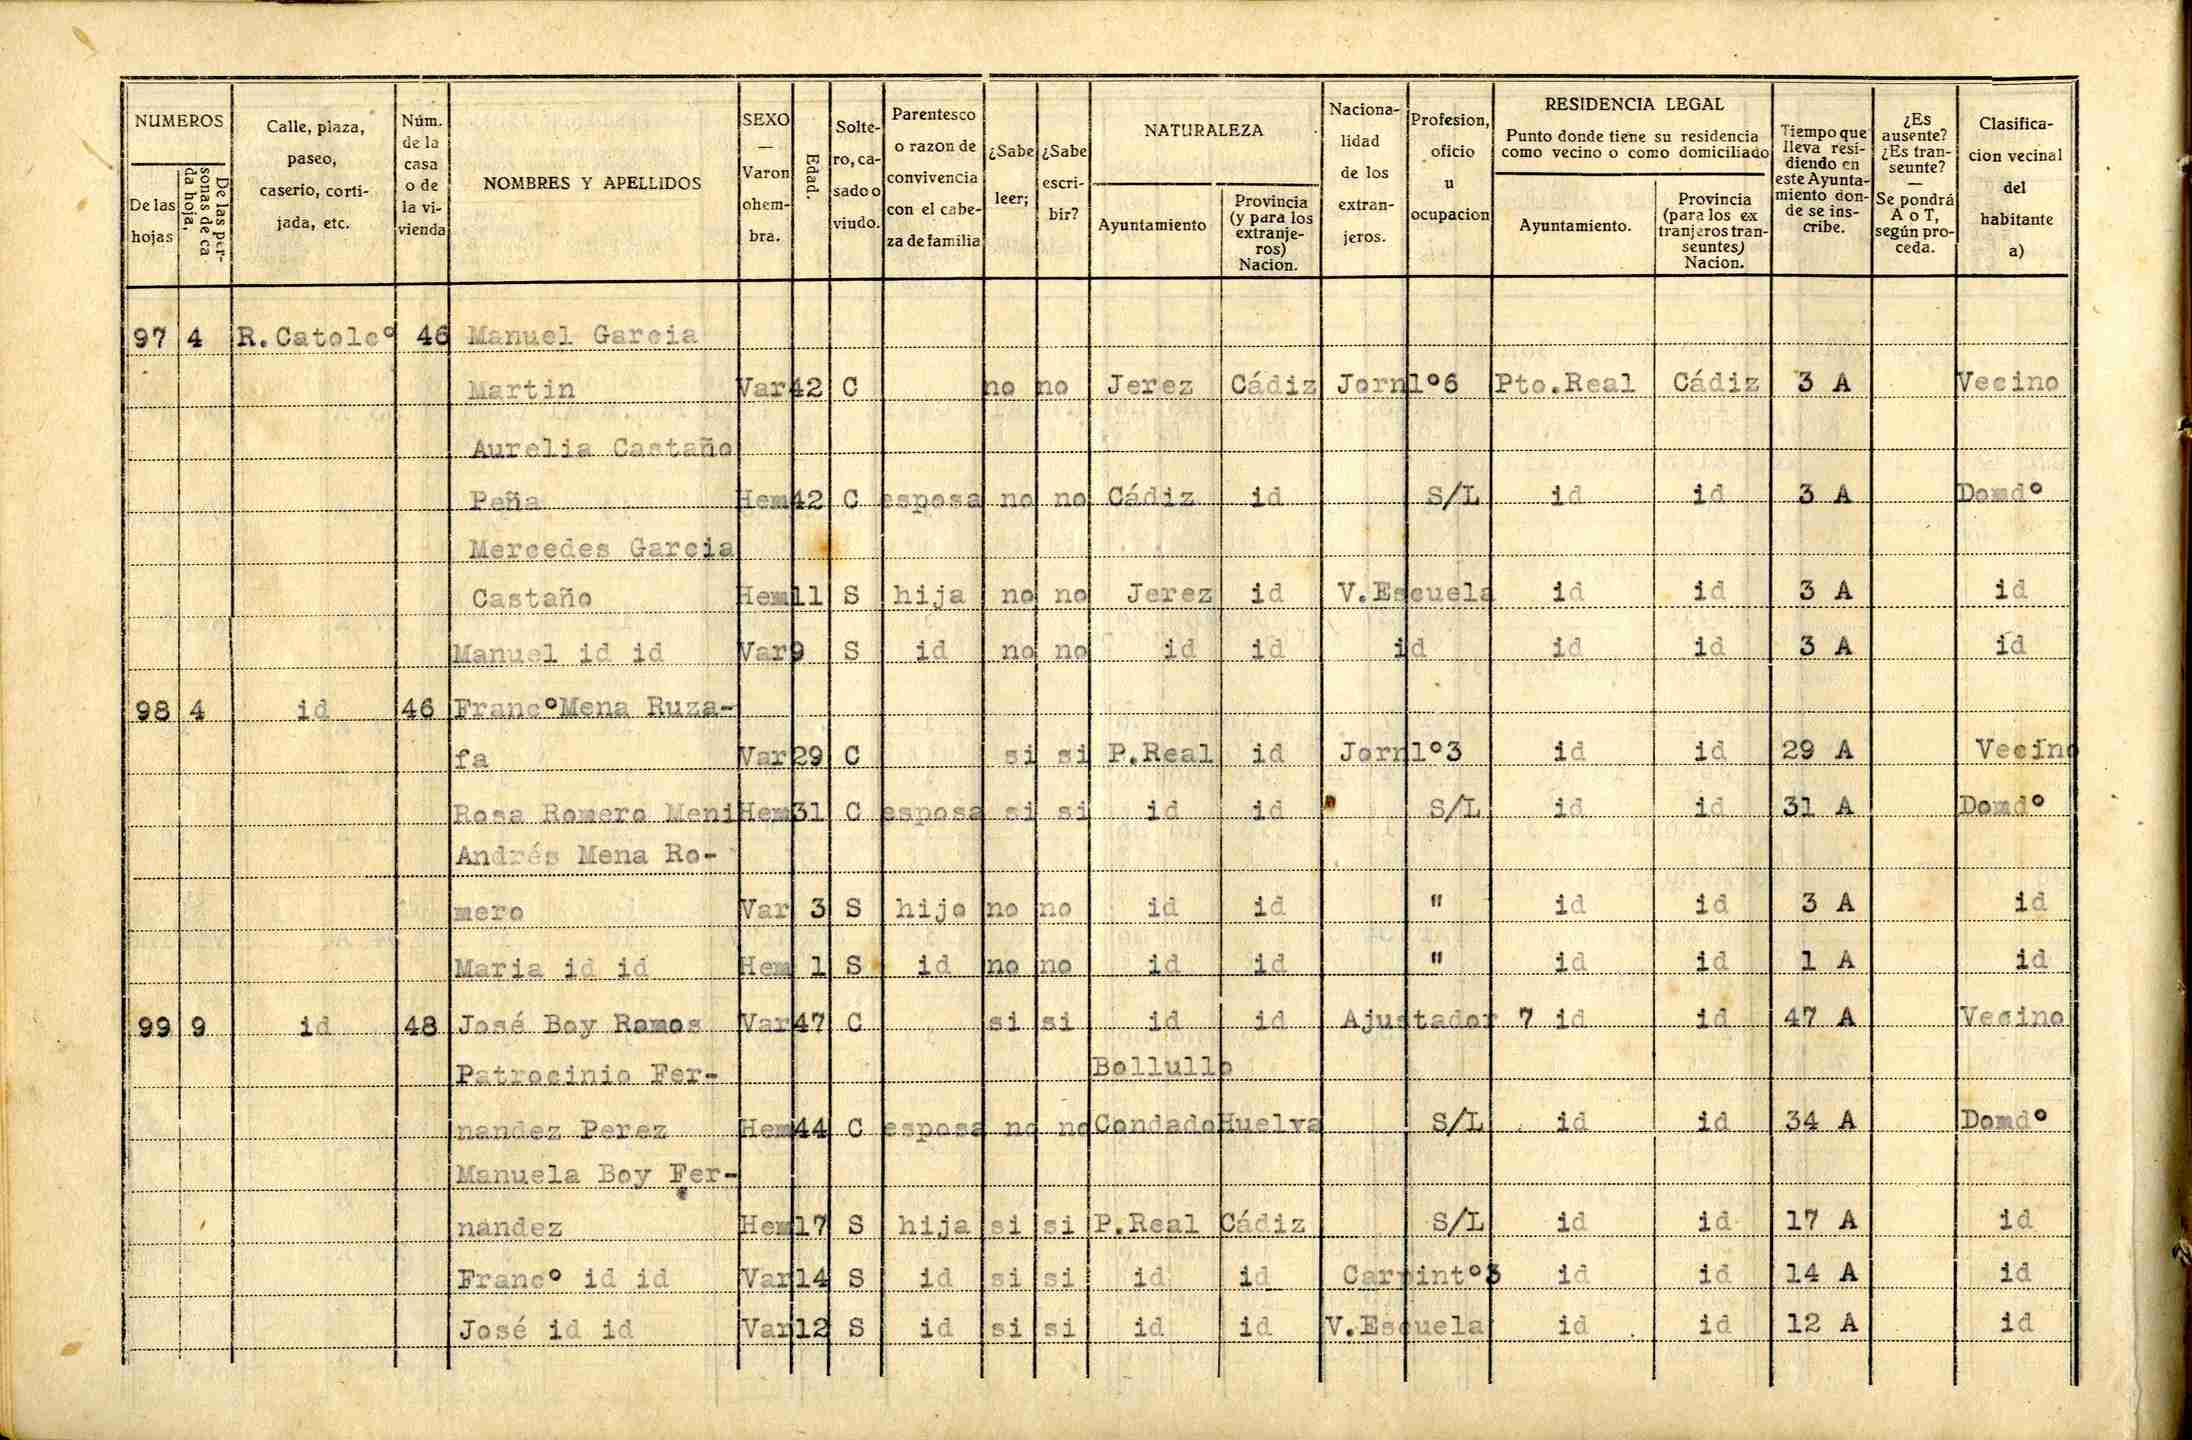 NUMEROS
De las hojas
De las personas de cada hoja.
Calle, plaza, paseo, caserio, cortijada, etc.
Núm. de la casa o de la vivienda
NOMBRES Y APELLIDOS
SEXO — Varon o hembra.
Edad.
Soltero, casado o viudo.
Parentesco o razon de convivencia con el cabeza de familia
¿Sabe leer;
¿Sabe escribir?
NATURALEZA
Ayuntamiento
Provincia (y para los extranjeros) Nacion.
Nacionalidad de los extranjeros.
Profesion, oficio u ocupacion
RESIDENCIA LEGAL
Punto donde tiene su residencia como vecino o como domiciliado
Ayuntamiento.
Provincia (para los extranjeros transeuntes) Nacion.
Tiempo que lleva residiendo en este Ayuntamiento donde se inscribe.
¿Es ausente? ¿Es transeunte? — Se pondrá A o T, según proceda.
Clasificacion vecinal del habitante a)
97 4 R.Catolcº 46 Manuel Garcia
Martin Var 42 C no no Jerez Cádiz Jornlº6 Pto.Real Cádiz 3 A Vecino
Aurelia Castaño
Peña Hem 42 C esposa no no Cádiz id S/L id id 3 A Domdº
Mercedes Garcia
Castaño Hem 11 S hija no no Jerez id V.Escuela id id 3 A id
Manuel id id Var 9 S id no no id id id id id 3 A id
98 4 id 46 FrancºMena Ruza-
fa Var 29 C si si P.Real id Jornlº3 id id 29 A Vecino
Rosa Romero Meni Hem 31 C esposa si si id id S/L id id 31 A Domdº
Andrés Mena Ro-
mero Var 3 S hijo no no id id " id id 3 A id
Maria id id Hem 1 S id no no id id " id id 1 A id
99 9 id 48 José Boy Ramos Var 47 C si si id id Ajustador 7 id id 47 A Vecino
Patrocinio Fer- Bollullo
nandez Perez Hem 44 C esposa no no Condado Huelva S/L id id 34 A Domdº
Manuela Boy Fer-
nandez Hem 17 S hija si si P.Real Cádiz S/L id id 17 A id
Francº id id Var 14 S id si si id id Carpintº3 id id 14 A id
José id id Var 12 S id si si id id V.Escuela id id 12 A id